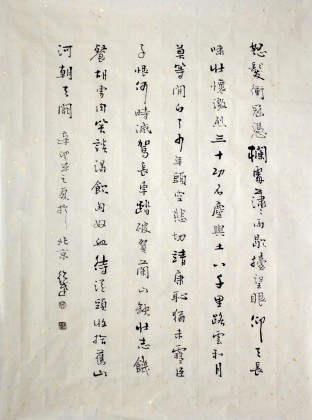 怒髮衝冠憑欄處瀟〻雨歇擡望眼仰天長
嘯壯懷激烈三十功名塵與土八千里路雲和月
莫等閒白了少年頭空悲切靖康恥猶未雪臣
子恨何時滅駕長車踏破賀蘭山缺壯志饑
餐胡虜肉笑談渴飲匈奴血待從頭收拾舊山
河朝天闕 辛卯年之夏於北京